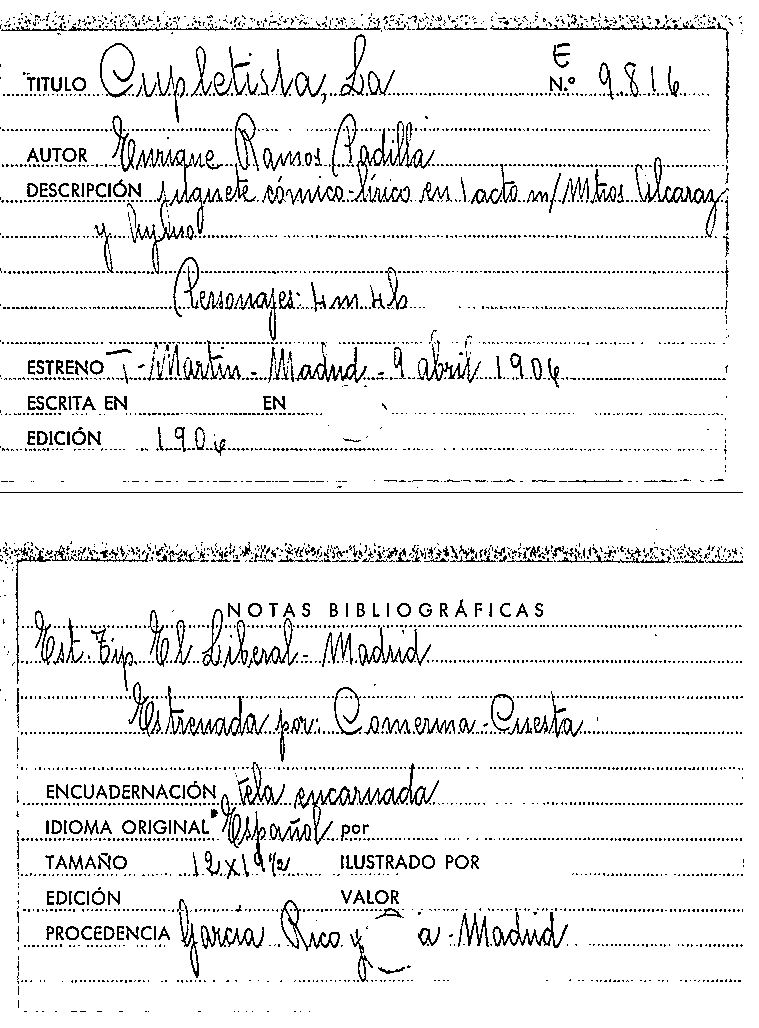 E
TITULO Cupletista, La N.º 9.816
AUTOR Enrique Ramos Padilla
DESCRIPCIÓN juguete cómico-lírico en 1 acto m/ Mtros Alcaraz
y
Personajes: 4 m 4 h
ESTRENO T- Martin - Madrid - 9 abril 1906
ESCRITA EN EN
EDICIÓN 1906
NOTAS BIBLIOGRÁFICAS
Est. Tip. El Liberal - Madrid
Estrenada por: Comerma - Cuesta
ENCUADERNACIÓN tela encarnada
IDIOMA ORIGINAL Español por
TAMAÑO 12 x 19 ½ ILUSTRADO POR
EDICIÓN VALOR
PROCEDENCIA García Rico y Cia - Madrid